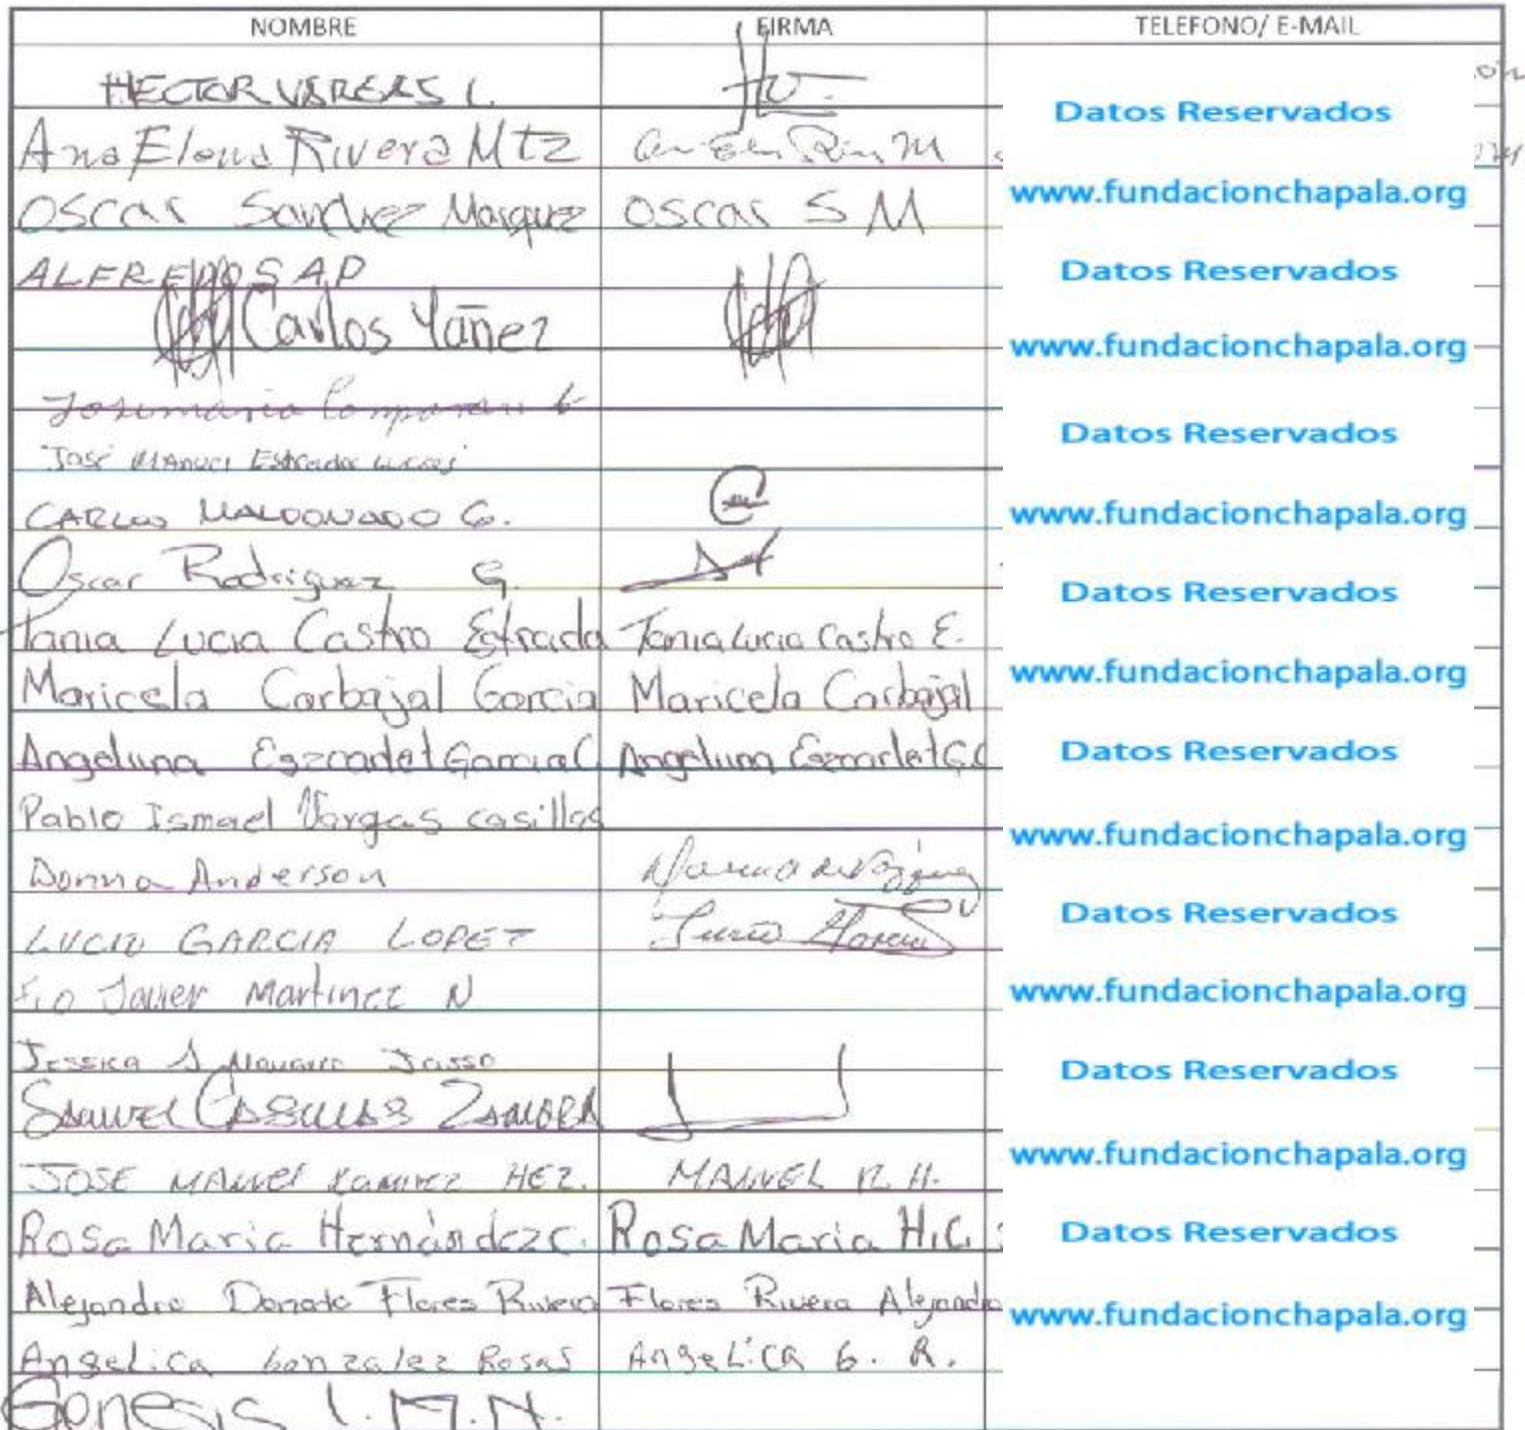 NOMBRE FIRMA TELEFONO/ E-MAIL
HECTOR VARGAS L.
Datos Reservados
Ana Elena Rivera Mtz
www.fundacionchapala.org
Oscar Sanchez Marquez OSCAR S M
ALFREDO S A P Datos Reservados
Carlos Yañez
www.fundacionchapala.org
Josemaria
Datos Reservados
José Manuel Estrada Lucas
CARLOS MALDONADO G. www.fundacionchapala.org
Oscar Rodriguez G.
Datos Reservados
Tania Lucia Castro Estrada Tania Lucia Castro E.
www.fundacionchapala.org
Maricela Carbajal Garcia Maricela Carbajal
Angelina Garcia C Angelina G.C
Datos Reservados
Pablo Ismael Vargas casillas
www.fundacionchapala.org
Donna Anderson
Datos Reservados
LUCIO GARCIA LOPEZ
Javier Martinez N www.fundacionchapala.org
Jessica Navarro Jasso Datos Reservados
SAMUEL CASILLAS ZAMORA
www.fundacionchapala.org
JOSE MANUEL RAMIREZ HEZ. MANUEL R. H.
Rosa Maria Hernández C. Rosa Maria H.C. Datos Reservados
Alejandro Donato Flores Rivera Flores Rivera Alejandro
www.fundacionchapala.org
Angelica Gonzalez Rosas Angelica G. R.
Genesis I.M.N.